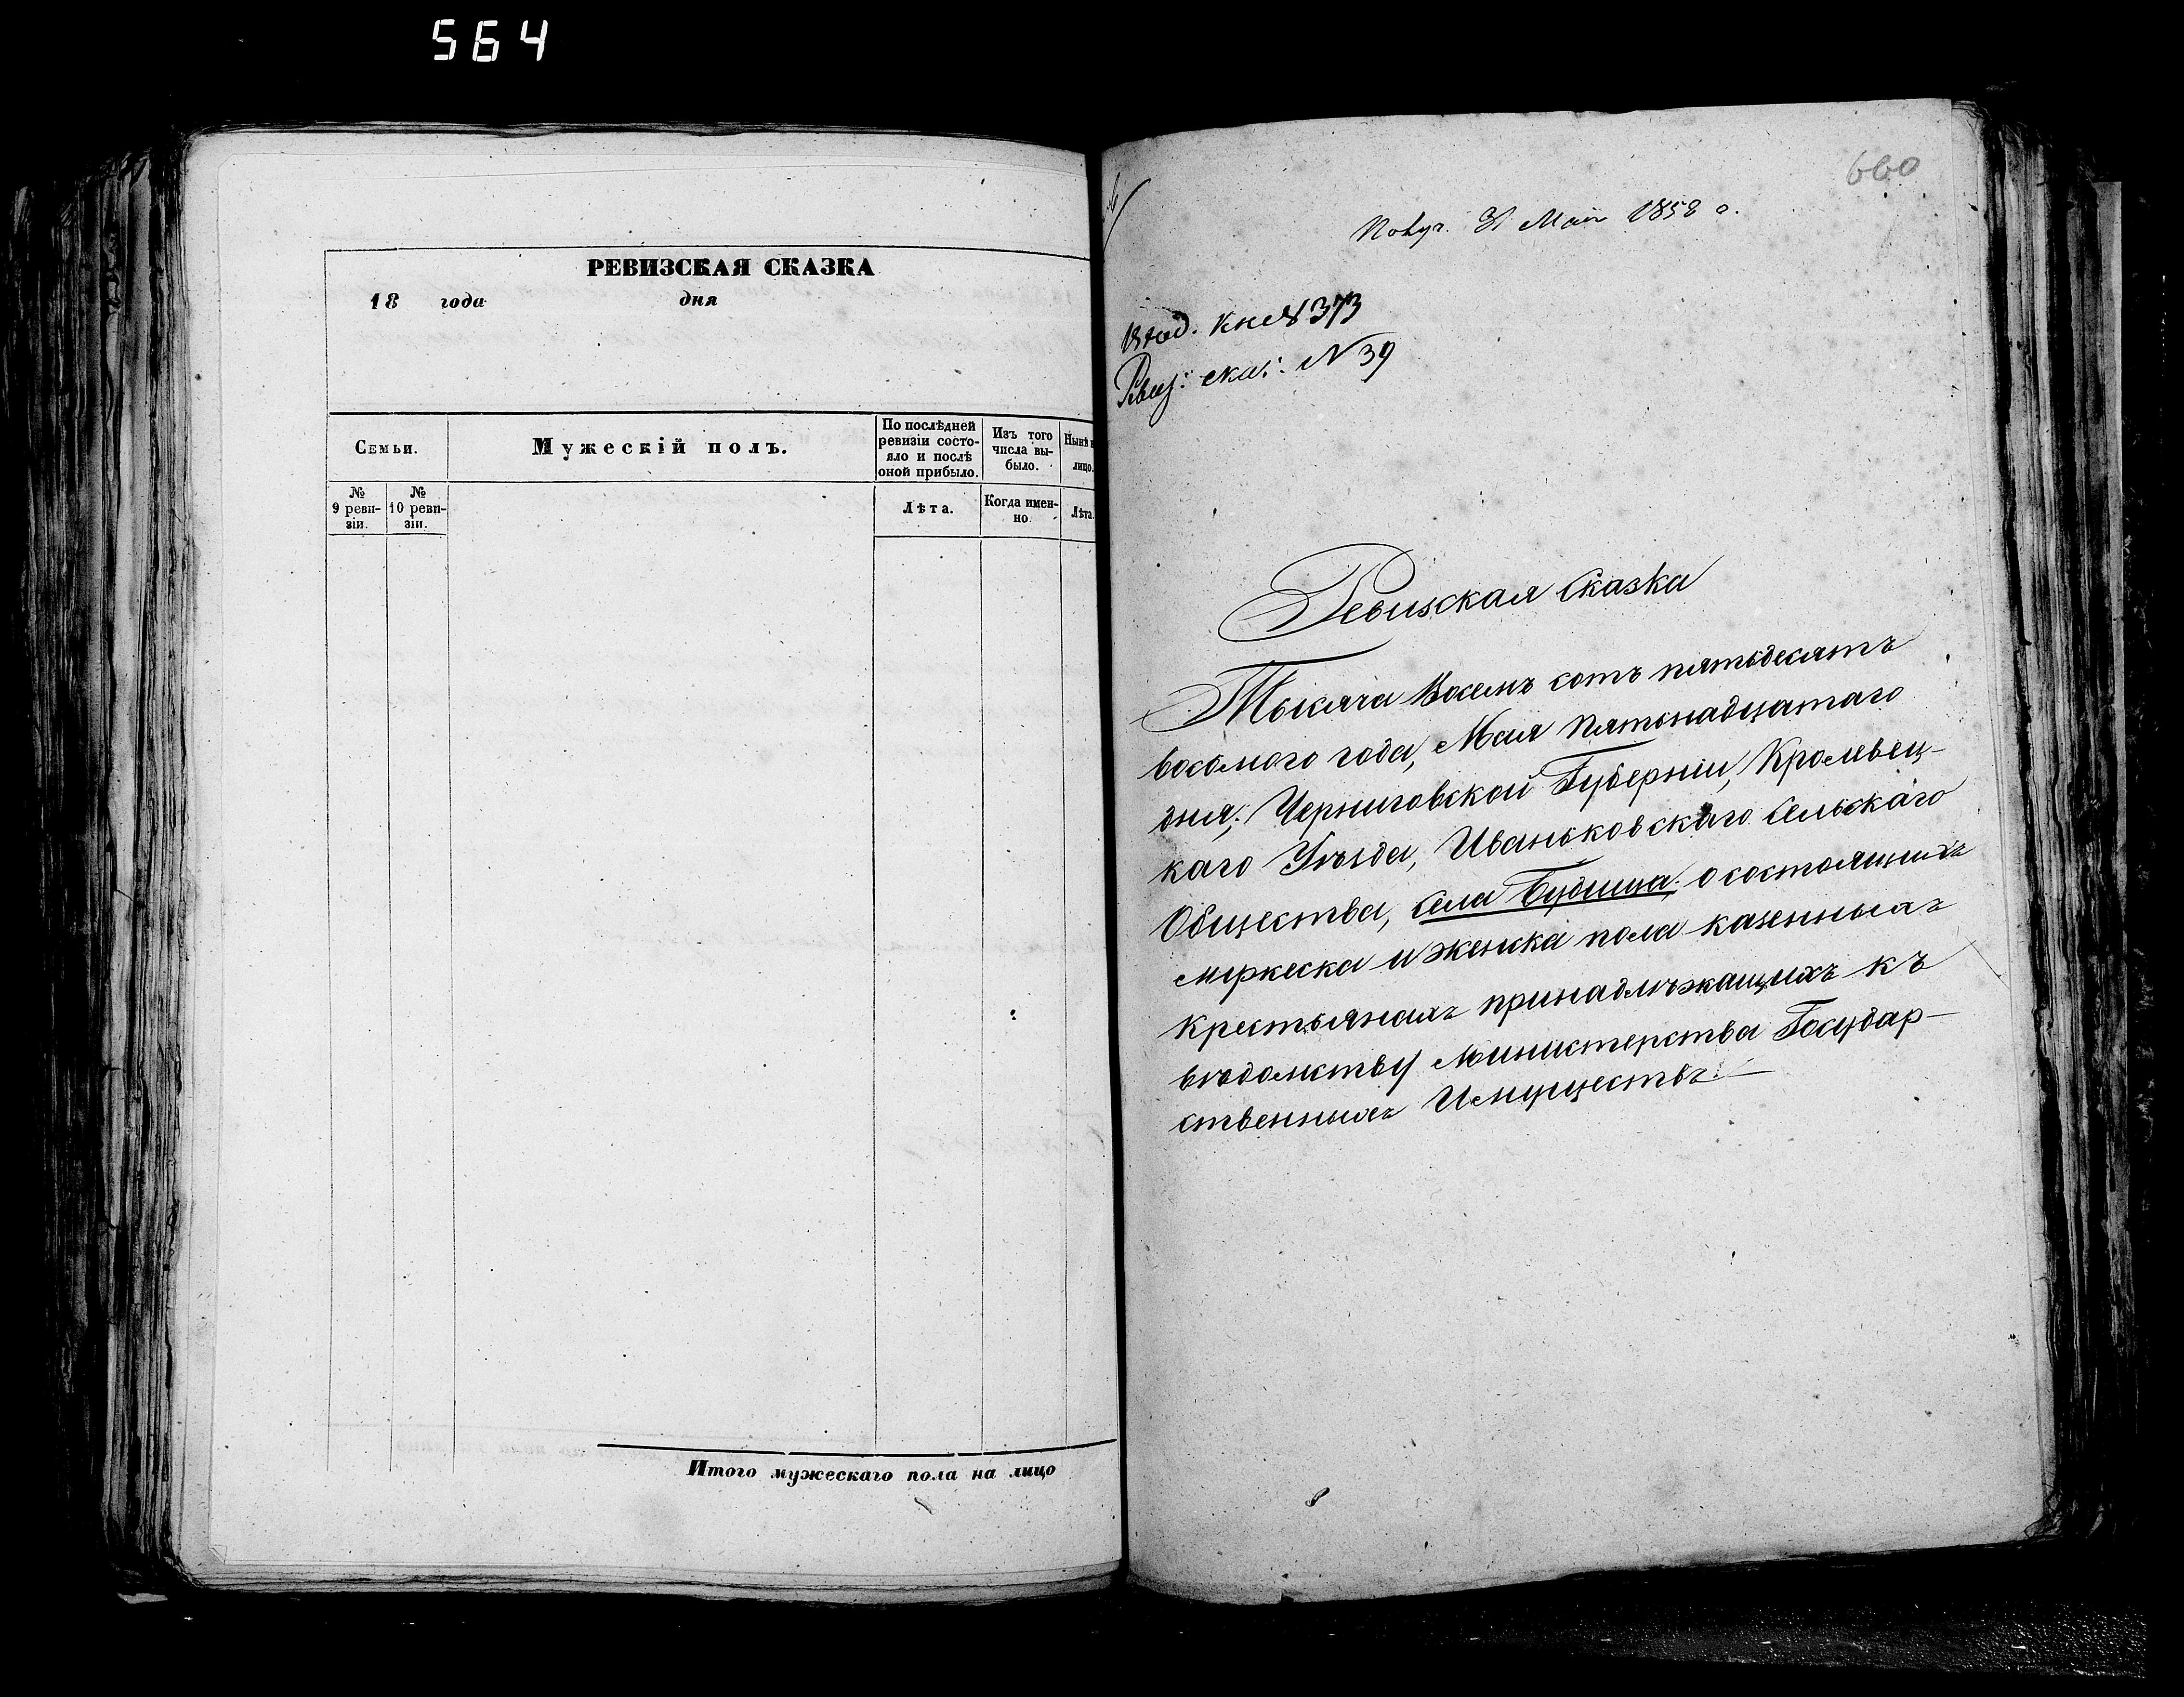 564
РЕВИЗСКАЯ СКАЗКА
18 года дня
Семьи.
Мужескій полъ.
По послѣдней
ревизіи состо-
яло и послѣ
оной прибыло.
Изъ того
числа вы-
было.
Нынѣ
лицо.
№
9 реви-
зіи.
№
10 реви-
зіи.
Лѣта.
Когда имен-
но.
Лѣта.
Итого мужескаго пола на лицо
660
Получ. 31 Мая 1858 г.
Вход. Кн. № 373
Ревиз: ска: N 39
Ревизская Сказка
Тысяча Восемь сотъ пятьдесятъ
восьмого года, Мая Пятьнадцатаго
дня; Черниговской Губерніи, Кролевец-
каго Уѣзда, Иваньковскаго Сельскаго
Общества, Села Будища; о состоящихъ
мужеска и женска пола казенныхъ
крестьянахъ принадлѣжащихъ къ
вѣдомству Министерства Государ-
ственныхъ Имуществъ.—